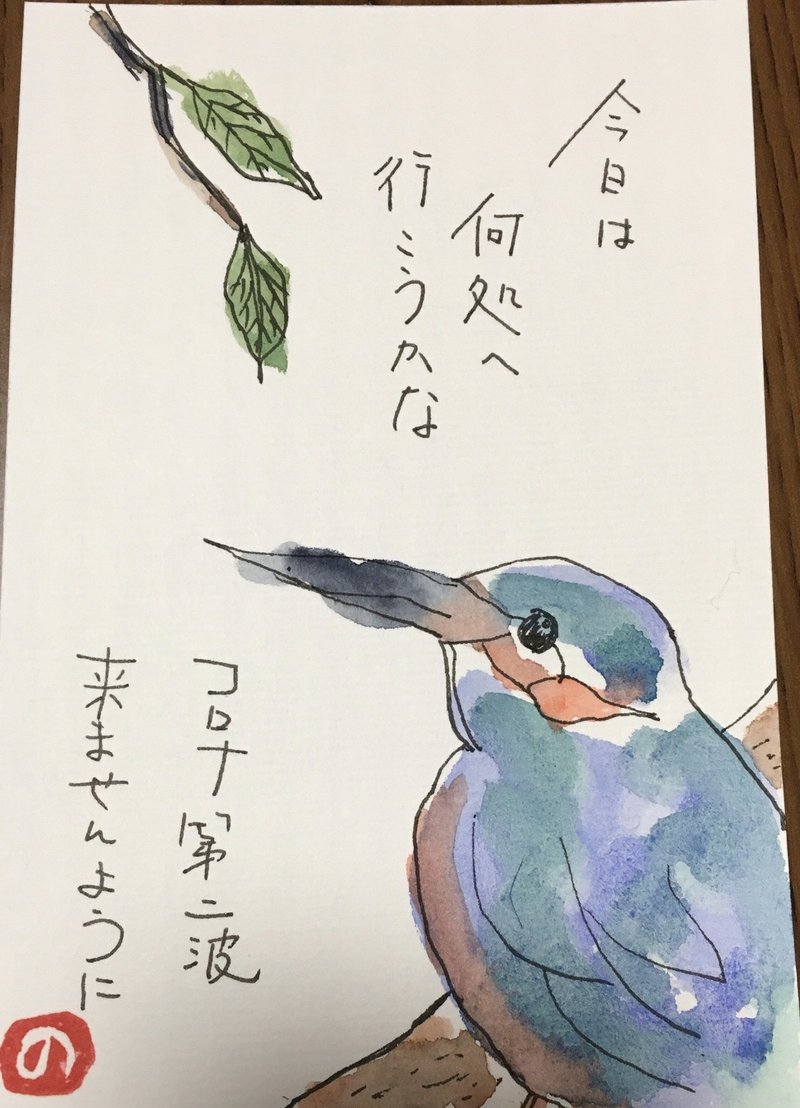 今日は
何処へ
行こうカな
コロナ第二波
来ませんように
の